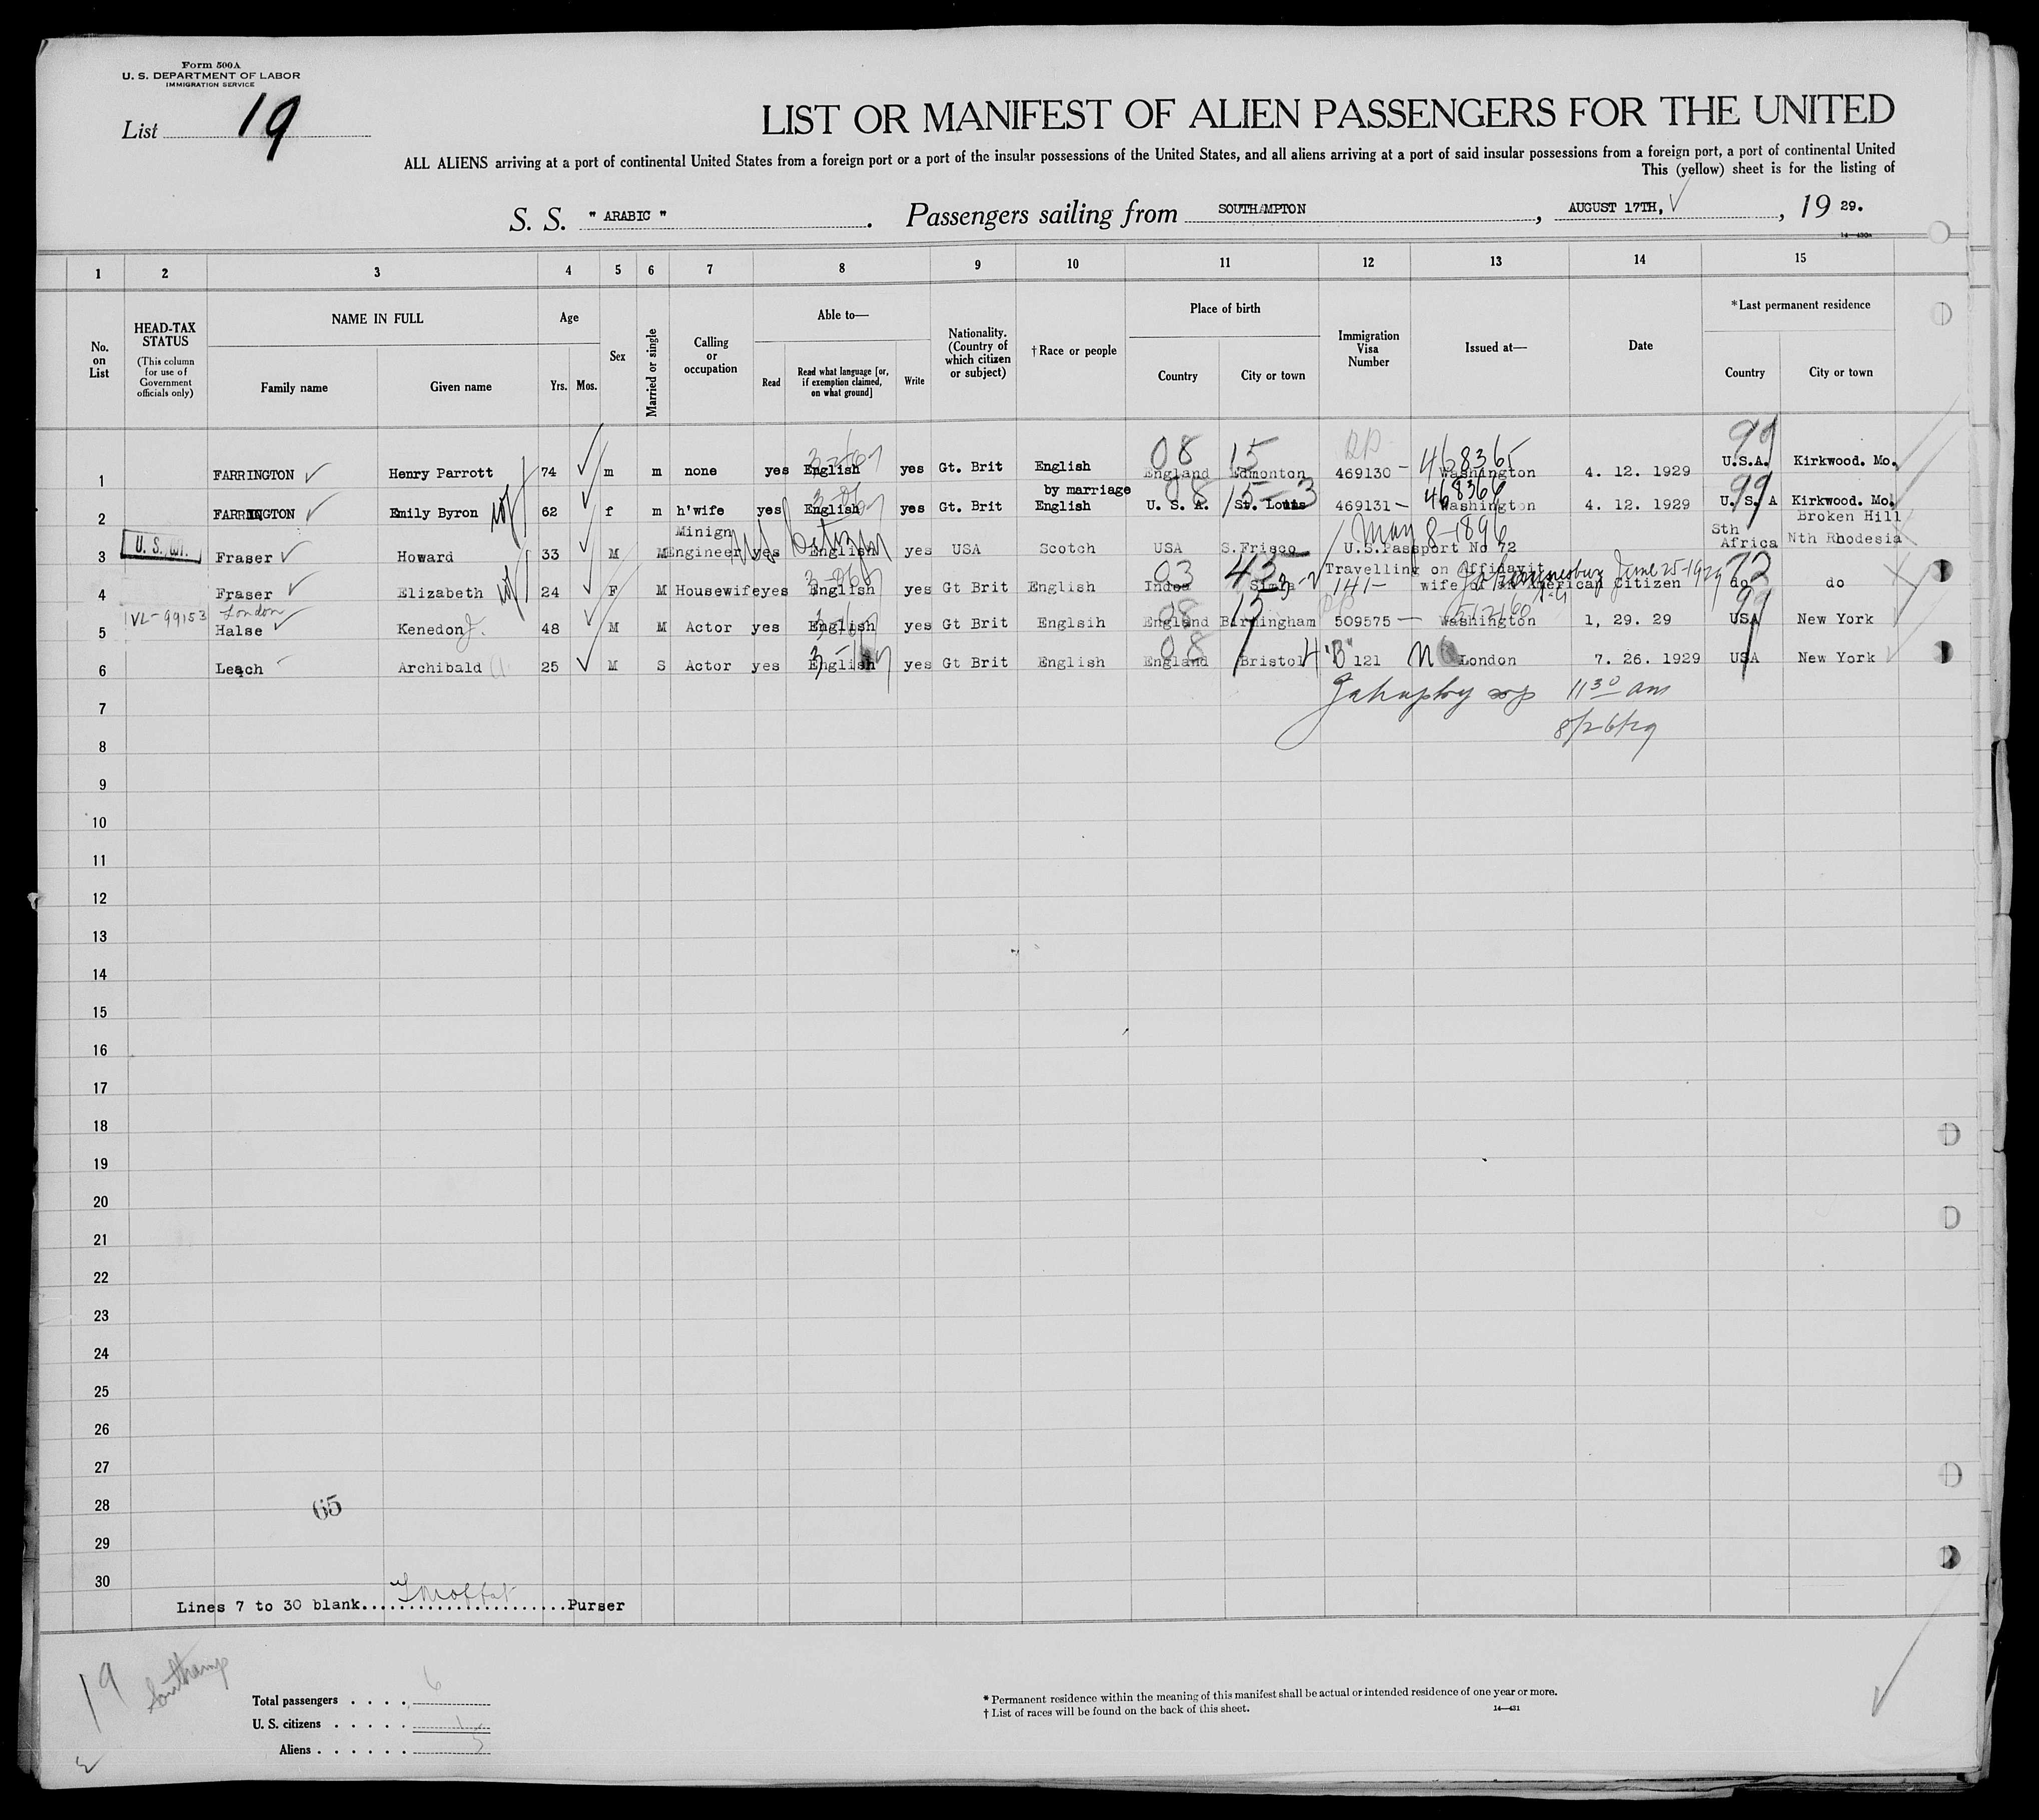 Form 500A
U. S. DEPARTMENT OF LABOR
IMMIGRATION SERVICE
List 19
LIST OR MANIFEST OF ALIEN PASSENGERS FOR THE UNITED
ALL ALIENS arriving at a port of continental United States from a foreign port or a port of the insular possessions of the United States, and all aliens arriving at a port of said insular possessions from a foreign port, a port of continental United
This (yellow) sheet is for the listing of
S. S. " ARABIC ". Passengers sailing from SOUTHAMPTON, AUGUST 17TH, 19 29.
14—430a
1 2 3 4 5 6 7 8 9 10 11 12 13 14 15
No. on List
HEAD-TAX STATUS
(This column for use of Government officials only)
NAME IN FULL
Family name
Given name
Age
Yrs. Mos.
Sex
Married or single
Calling or occupation
Able to—
Read
Read what language [or, if exemption claimed, on what ground]
Write
Nationality. (Country of which citizen or subject)
† Race or people
Place of birth
Country
City or town
Immigration Visa Number
Issued at—
Date
* Last permanent residence
Country
City or town
1 FARRINGTON Henry Parrott 74 m m none yes English yes Gt. Brit English England Edmonton 469130 – 468365 Washington 4. 12. 1929 U.S.A. Kirkwood. Mo.
08 15 99
2 FARRINGTON Emily Byron 62 f m h'wife yes English yes Gt. Brit English by marriage U. S. A. St. Louis 469131 – 468366 Washington 4. 12. 1929 U. S. A Kirkwood. Mo.
08 15-3 99
3 U. S. Fraser Howard 33 M M Minign Engineer yes English yes USA Scotch USA S.Frisco U.S.Passport No 72 Sth Africa Broken Hill Nth Rhodesia
May 8-1896
4 Fraser Elizabeth 24 F M Housewife yes English yes Gt Brit English Indea Simla 141– Travelling on Affidavit wife of an American Citizen do do
03 43 June 25-1929 72
5 VL-99153 London Halse Kenedon J. 48 M M Actor yes English yes Gt Brit Englsih England Birmingham 509575 — Washington 1, 29. 29 USA New York
08 15 512160 99
6 Leach Archibald A 25 M S Actor yes English yes Gt Brit English England Bristol "B" 121 London 7. 26. 1929 USA New York
08
7 11 30 am
8 8/26/29
9
10
11
12
13
14
15
16
17
18
19
20
21
22
23
24
25
26
27
28 65
29
30
Lines 7 to 30 blank......................Purser
19 Southamp
Total passengers . . . . 6
U. S. citizens . . . . . 1
Aliens . . . . . . 5
* Permanent residence within the meaning of this manifest shall be actual or intended residence of one year or more.
† List of races will be found on the back of this sheet.
14—431